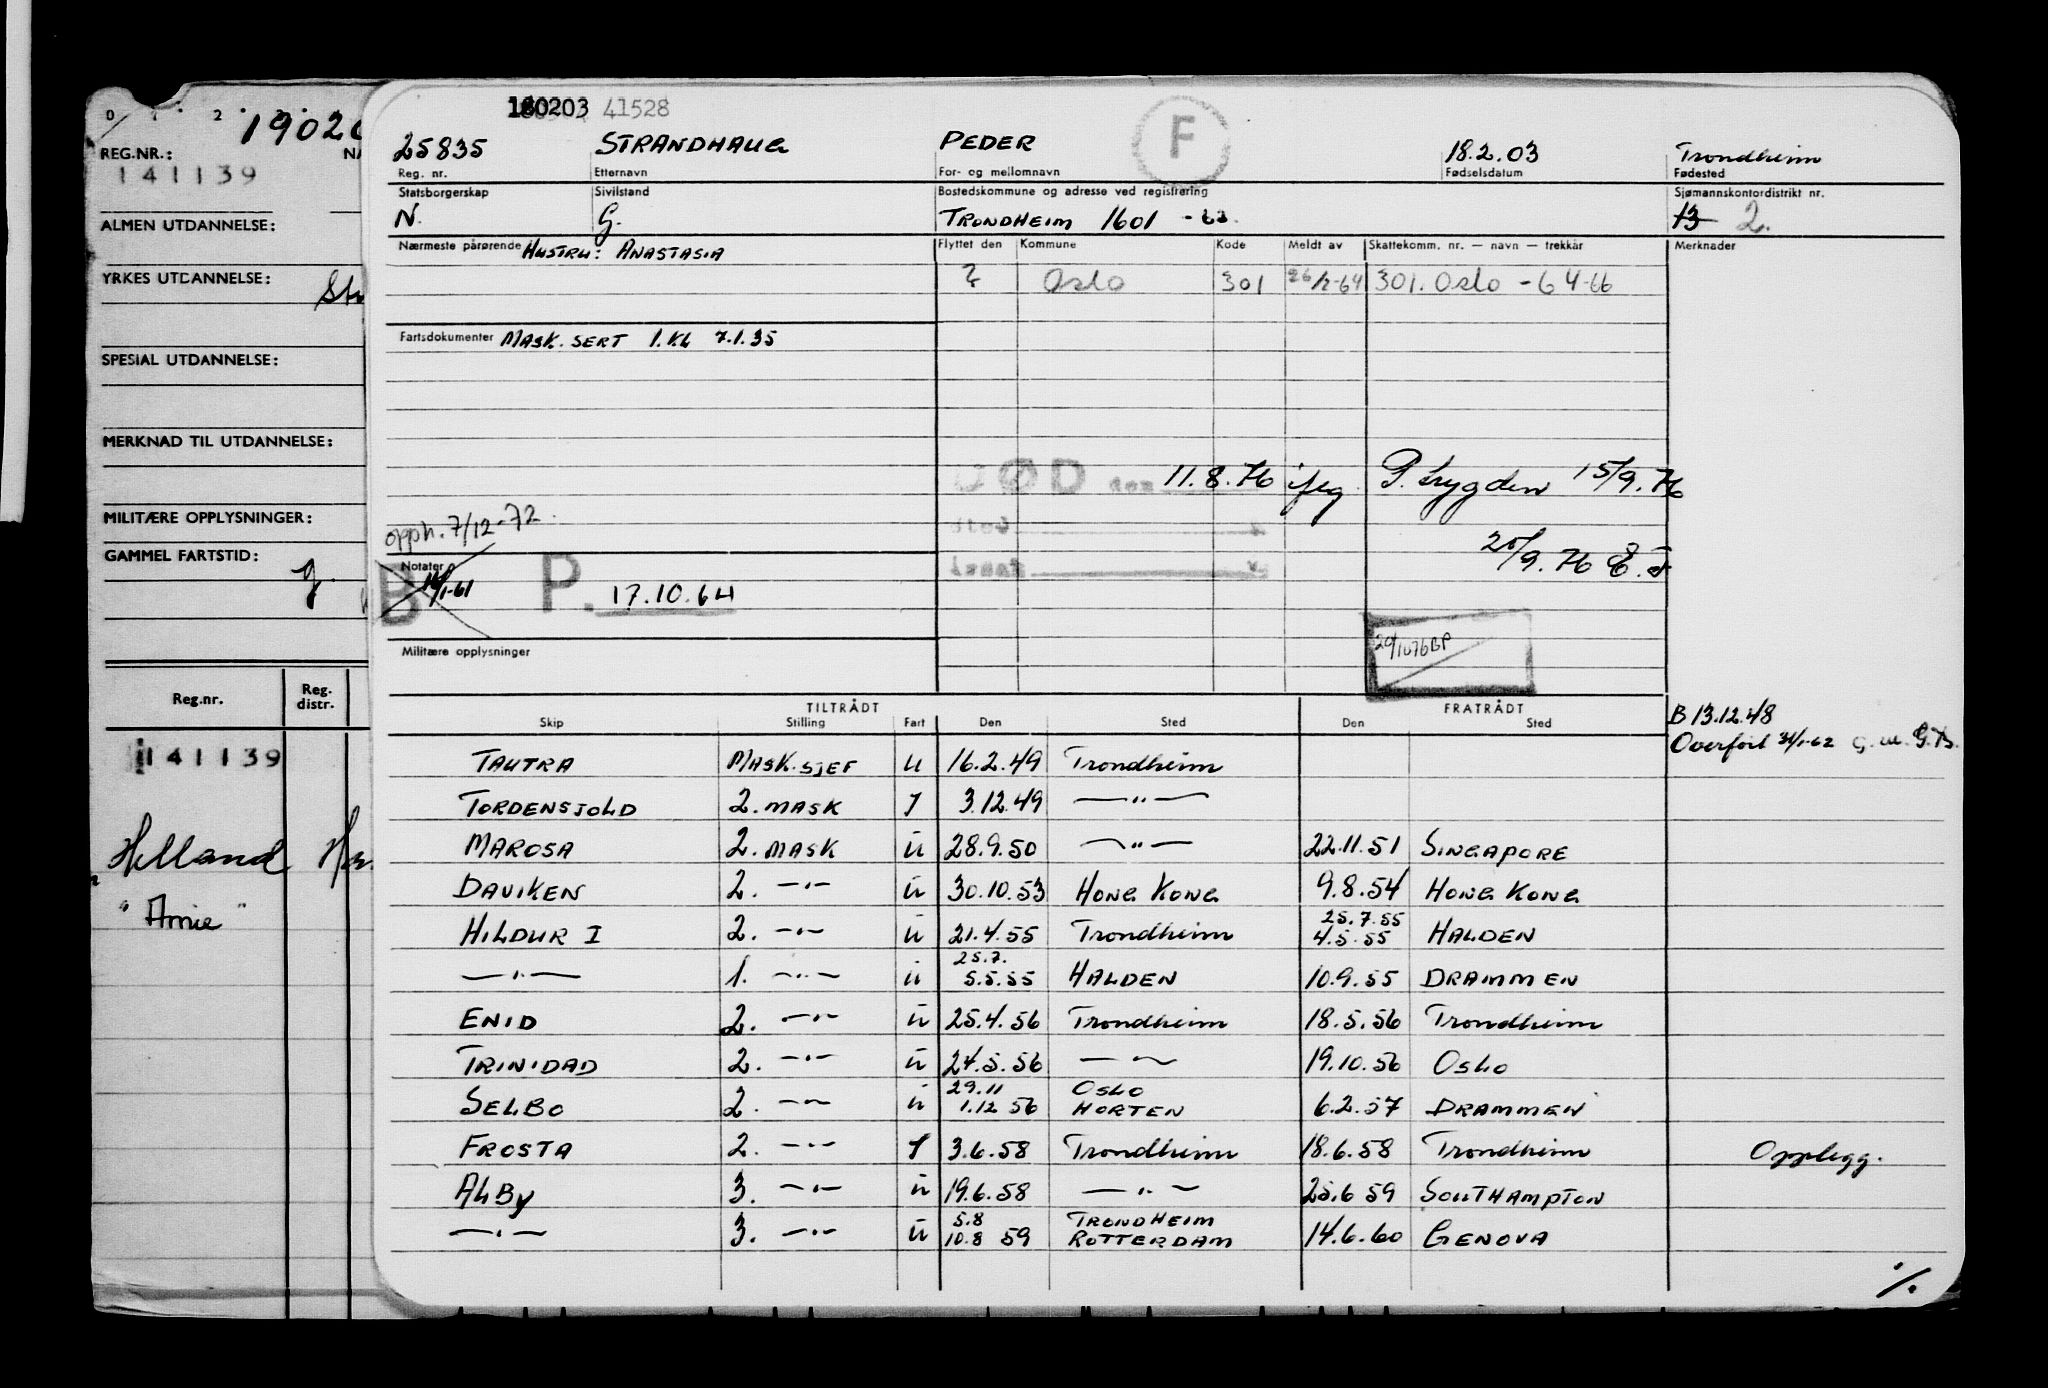 0 1 2
19020
REG.NR.:
141139
ALMEN UTDANNELSE:
YRKES UTDANNELSE:
SPESIAL UTDANNELSE:
MERKNAD TIL UTDANNELSE:
MILITÆRE OPPLYSNINGER:
GAMMEL FARTSTID:
g.
Reg.nr. Reg. distr.
141139
Helland
" Arnie "
180203 41528
25835 STRANDHAUG PEDER F 18.2.03 Trondheim
Reg. nr. Etternavn For- og mellomnavn Fødselsdatum Fødested
Statsborgerskap Sivilstand Bostedskommune og adresse ved registrering Sjømannskontordistrikt nr.
N. G. TRONDHEIM 1601 - 63. 13 2.
Nærmeste pårørende HUSTRU: ANASTASIA Flyttet den Kommune Kode Meldt av Skattekomm. nr. — navn — trekkår Merknader
? Oslo 301 26/2-64 301. Oslo - 64-66
Fartsdokumenter MASK. SERT 1. KL 7.1.35
DØD den 11.8.76 ifølg P. trygden 15/9.76
opph. 7/12-72.
sted
25/9.76 E.F
Notater
B 14/1-61 P. 17.10.64
20/10 76 BP
Militære opplysninger
TILTRÅDT FRATRÅDT
Skip Stilling Fart Den Sted Den Sted
B 13.12.48
Overført 31/1-62 G.B.
TAUTRA MASK.SJEF U 16.2.49 Trondheim
TORDENSJOLD 2. MASK I 3.12.49 —"—
MAROSA 2. MASK U 28.9.50 —"— 22.11.51 SINGAPORE
DAVIKEN 2. —"— U 30.10.53 HONG KONG 9.8.54 HONG KONG
HILDUR I 2. —"— U 21.4.55 Trondheim 25.7.55 4.5.55 HALDEN
—"— 1. —"— U 25.7. 5.5.55 HALDEN 10.9.55 DRAMMEN
ENID 2. —"— U 25.4.56 Trondheim 18.5.56 Trondheim
TRINIDAD 2. —"— U 24.5.56 —"— 19.10.56 OSLO
SELBO 2. —"— U 29.11 1.12 56 OSLO HORTEN 6.2.57 DRAMMEN
FROSTA 2. —"— I 3.6.58 Trondheim 18.6.58 Trondheim Opplegg.
ALBY 3. —"— U 19.6.58 —"— 25.6 59 SOUTHAMPTON
—"— 3. —"— U 5.8 10.8 59 TRONDHEIM ROTTERDAM 14.6.60 GENOVA
·/.